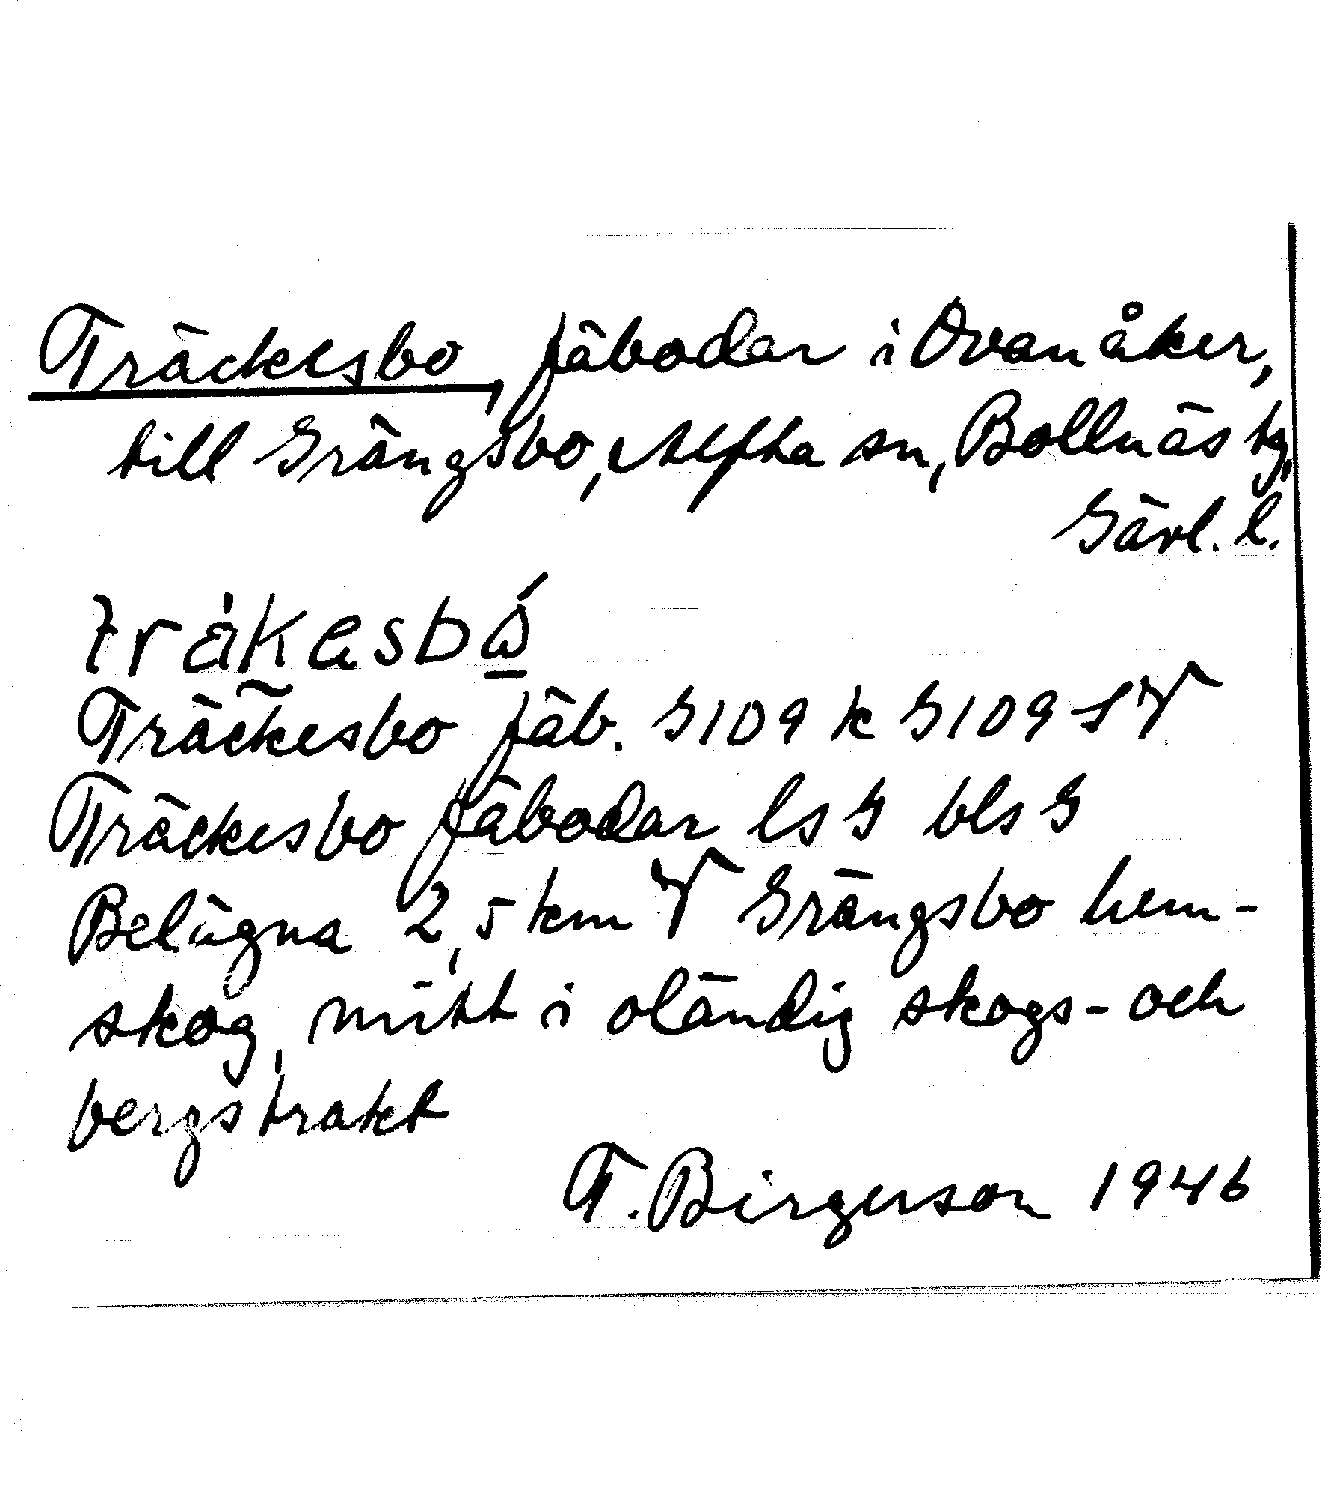 Träckesbo, fäbodar i Ovanåker,
till Grängsbo, Alfta sn, Bollnäs tg,
Gävl. l.
träkesbó̲
Träckesbo fäb. G109 k G109 SV
Träckesbo fäbodar ls G bls G
Belägna 2,5 km V Grängsbo hem-
skog, mitt i oländig skogs- och
bergstrakt
T. Birgerson 1946